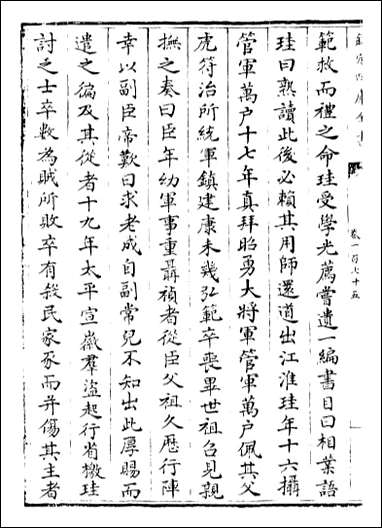 欽定四庫全書
卷一百七十五
範救而禮之命珪受學光薦嘗遺一編書目曰相業語
珪曰熟讀此後必賴其用師還道出江淮珪年十六攝
管軍萬戶十七年真拜昭勇大將軍管軍萬戶佩其父
虎符治所統軍鎮建康未幾弘範卒喪畢世祖召見親
撫之奏曰臣年幼軍事重聶禎者從臣父祖久歷行陣
幸以副臣帝歎曰求老成自副常兒不知出此厚賜而
遣之徧及其從者十九年太平宣徽羣盜起行省檄珪
討之士卒數為賊所敗卒有殺民家豕而并傷其主者